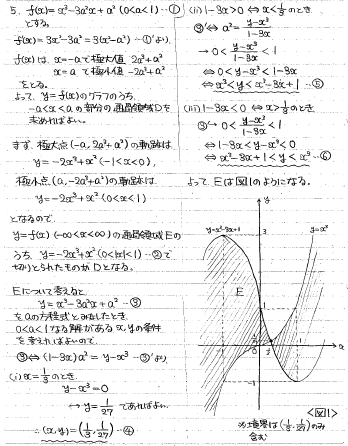 5. f(x)=x³-3a²x+a² (0<a<1) …①
とする。
f'(x)=3x²-3a²=3(x²-a²) …①'より、
f(x)は、x=-aで極大値 2a³+a²
x=aで極小値 -2a³+a²
をとる。
よって、y=f(x)のグラフのうち、
-a<x<aの部分の通過領域Dを
求めればよい。
まず、極大点(-a, 2a³+a²)の軌跡は
y=-2x³+x² (-1<x<0),
極小点(a, -2a³+a²)の軌跡は
y=-2x³+x² (0<x<1)
となるので
y=f(x) (-∞<x<∞)の通過領域Eの
うち、y=-2x³+x² (0<|x|<1) …②で
切りとられたものがDとなる。
Eについて考えると
y=x³-3a²x+a² …③
をaの方程式とみなしたとき、
0<a<1なる解があるx,yの条件
を考えればよいので
③⇔(1-3x)a²=y-x³ …③'より
(i) x=1/3のとき、
y-x³=0
↔ y=1/27 であればよい。
∴(x,y)=(1/3, 1/27) …④
(ii) 1-3x>0 ⇔ x<1/3のとき
③'⇔ a²=y-x³/1-3x
→ 0<y-x³/1-3x<1
⇔ 0<y-x³<1-3x
⇔ x³<y<x³-3x+1 …⑤
(iii) 1-3x<0 ⇔ x>1/3のとき、
③'→ 0<y-x³/1-3x<1
⇔ 1-3x<y-x³<0
⇔ x³-3x+1<y<x³ …⑥
よって、Eは図1のようになる。
y
y=x³-3x+1
3
y=x³
E
1
-1
0
1/3
1
x
-1
<図1>
※境界は(1/3, 1/27)のみ
含む